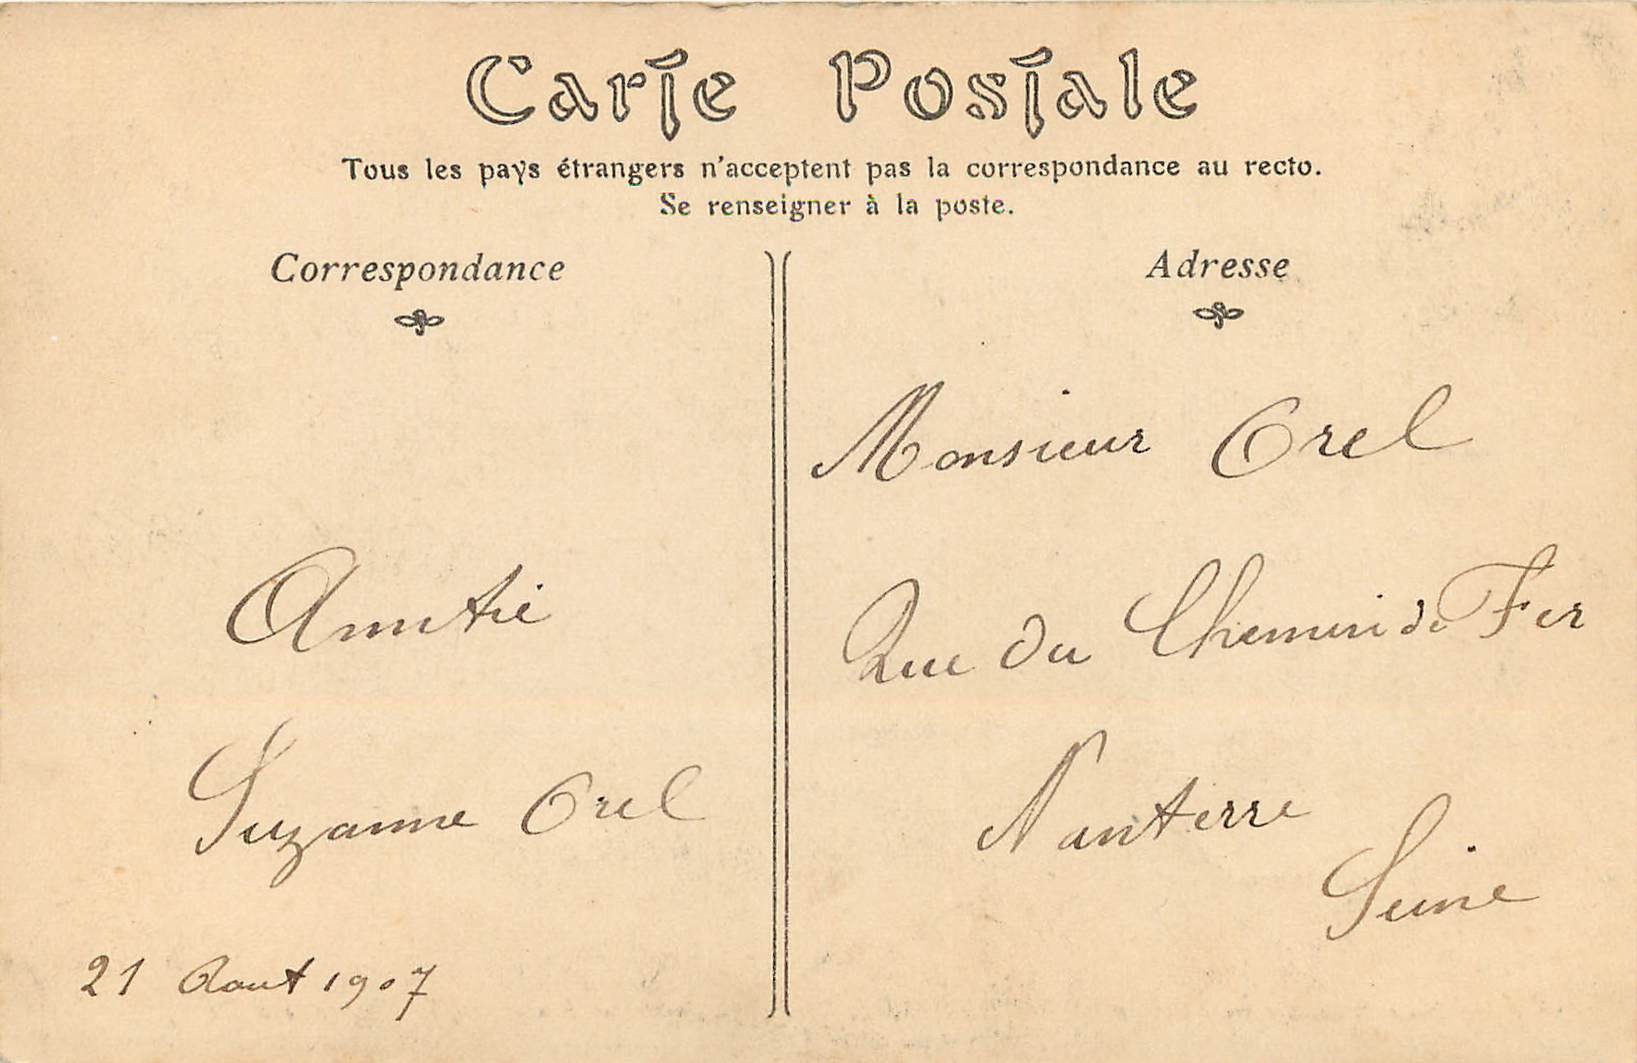 Carte Postale
Tous les pays étrangers n'acceptent pas la correspondance au recto.
Se renseigner à la poste.
Correspondance
Amitié
Suzanne Orel
21 Aout 1907
Adresse
Monsieur Orel
Rue du Chemin de Fer
Nanterre
Seine